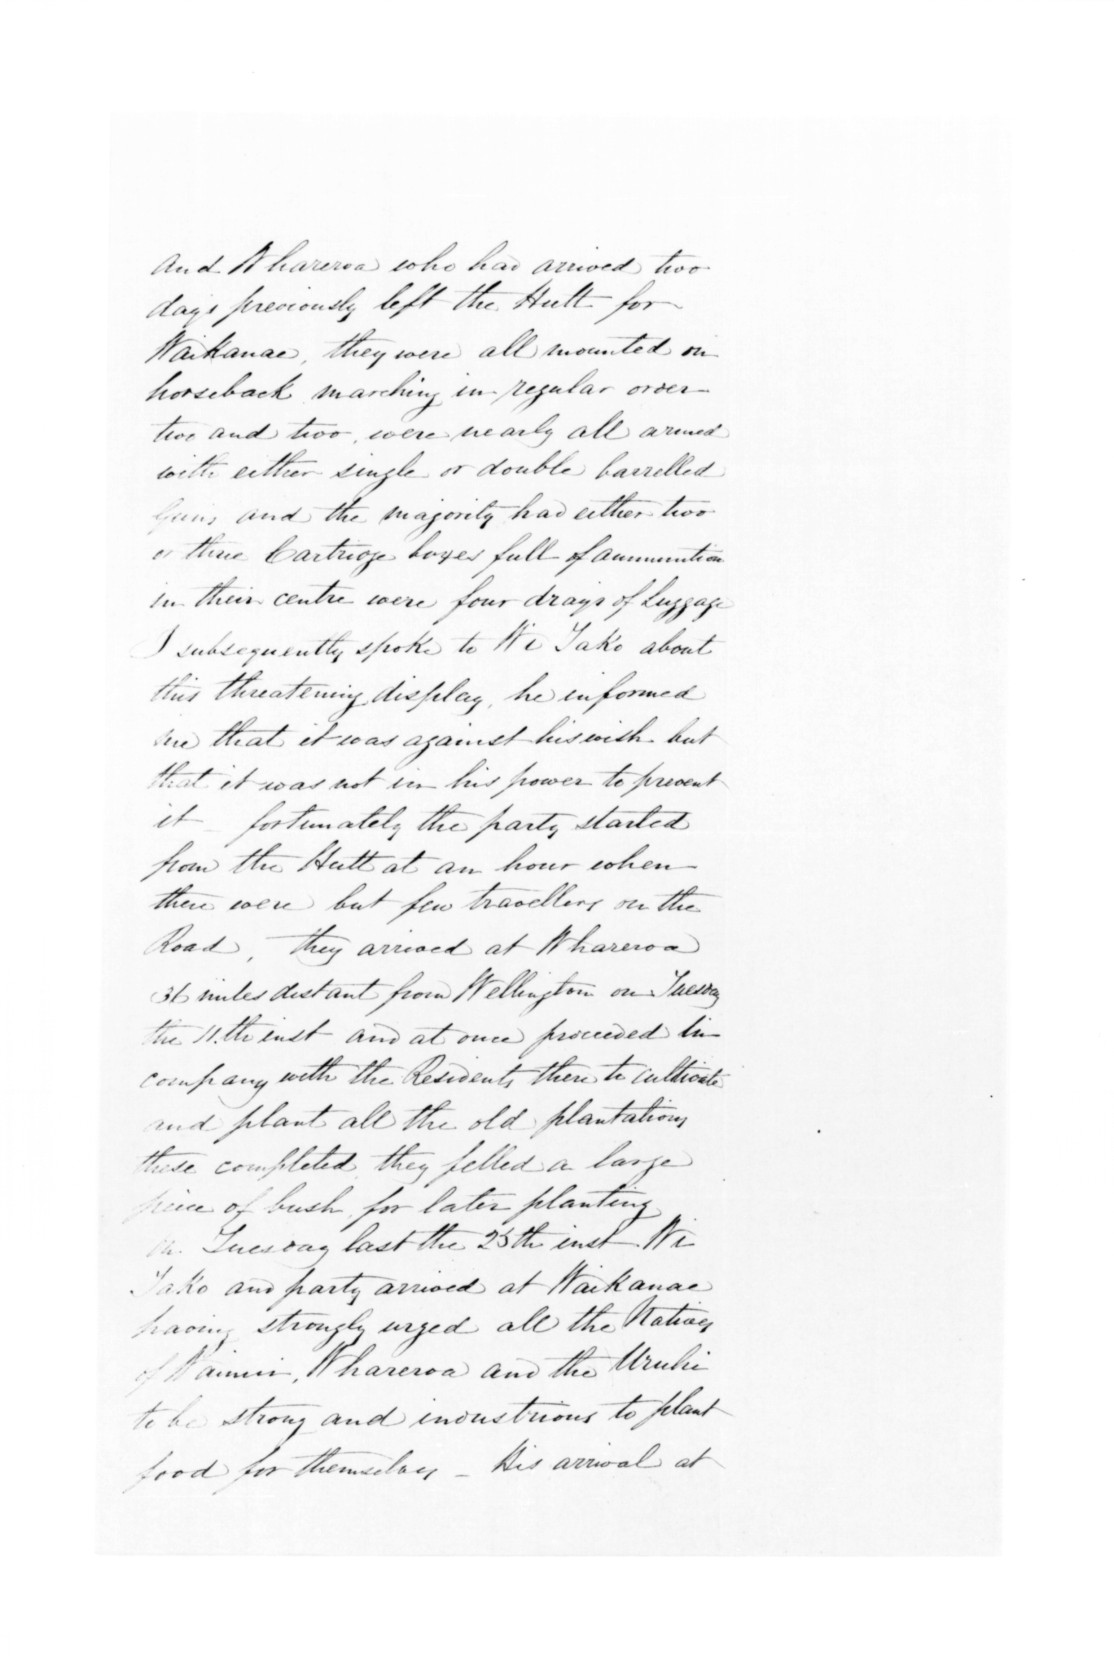 and Whareroa who had arrived two
days previously left the Hutt for
Waikanae, they were all mounted on
horseback marching in regular order
two and two, were nearly all armed
with either single or double barrelled
Guns and the majority had either two
or three Cartridge boxes full of ammunition
in their centre were four drays of Luggage
I subsequently spoke to Wi Tako about
this threatening display, he informed
me that it was against his wish but
that it was not in his power to prevent
it - fortunately the party started
from the Hutt at an hour when
there were but few travellers on the
Road, they arrived at Whareroa
36 miles distant from Wellington on Tuesday
the 11.th inst and at once proceeded in
company with the Residents there to cultivate
and plant all the old plantations
these completed they felled a large
piece of bush for later planting
on Tuesday last the 25th inst Wi
Tako and party arrived at Waikanae
having strongly urged all the Natives
of Wainui, Whareroa and the Uruhi
to be strong and industrious to plant
food for themselves - His arrival at